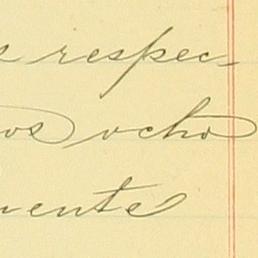 s respec-
os ocho
mente